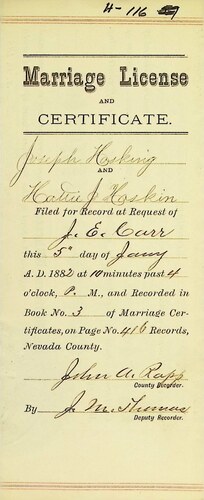 H-116
Marriage License
AND
CERTIFICATE.
Joseph Hosking
AND
Hattie J Hoskin
Filed for Record at Request of
J. E. Carr
this 5th day of Jany
A. D. 1882 at 10 minutes past 4
o'clock, P. M., and Recorded in
Book No. 3 of Marriage Cer-
tificates, on Page No. 416 Records,
Nevada County.
John A. Rapp
County Recorder.
By J. M. Thomas
Deputy Recorder.